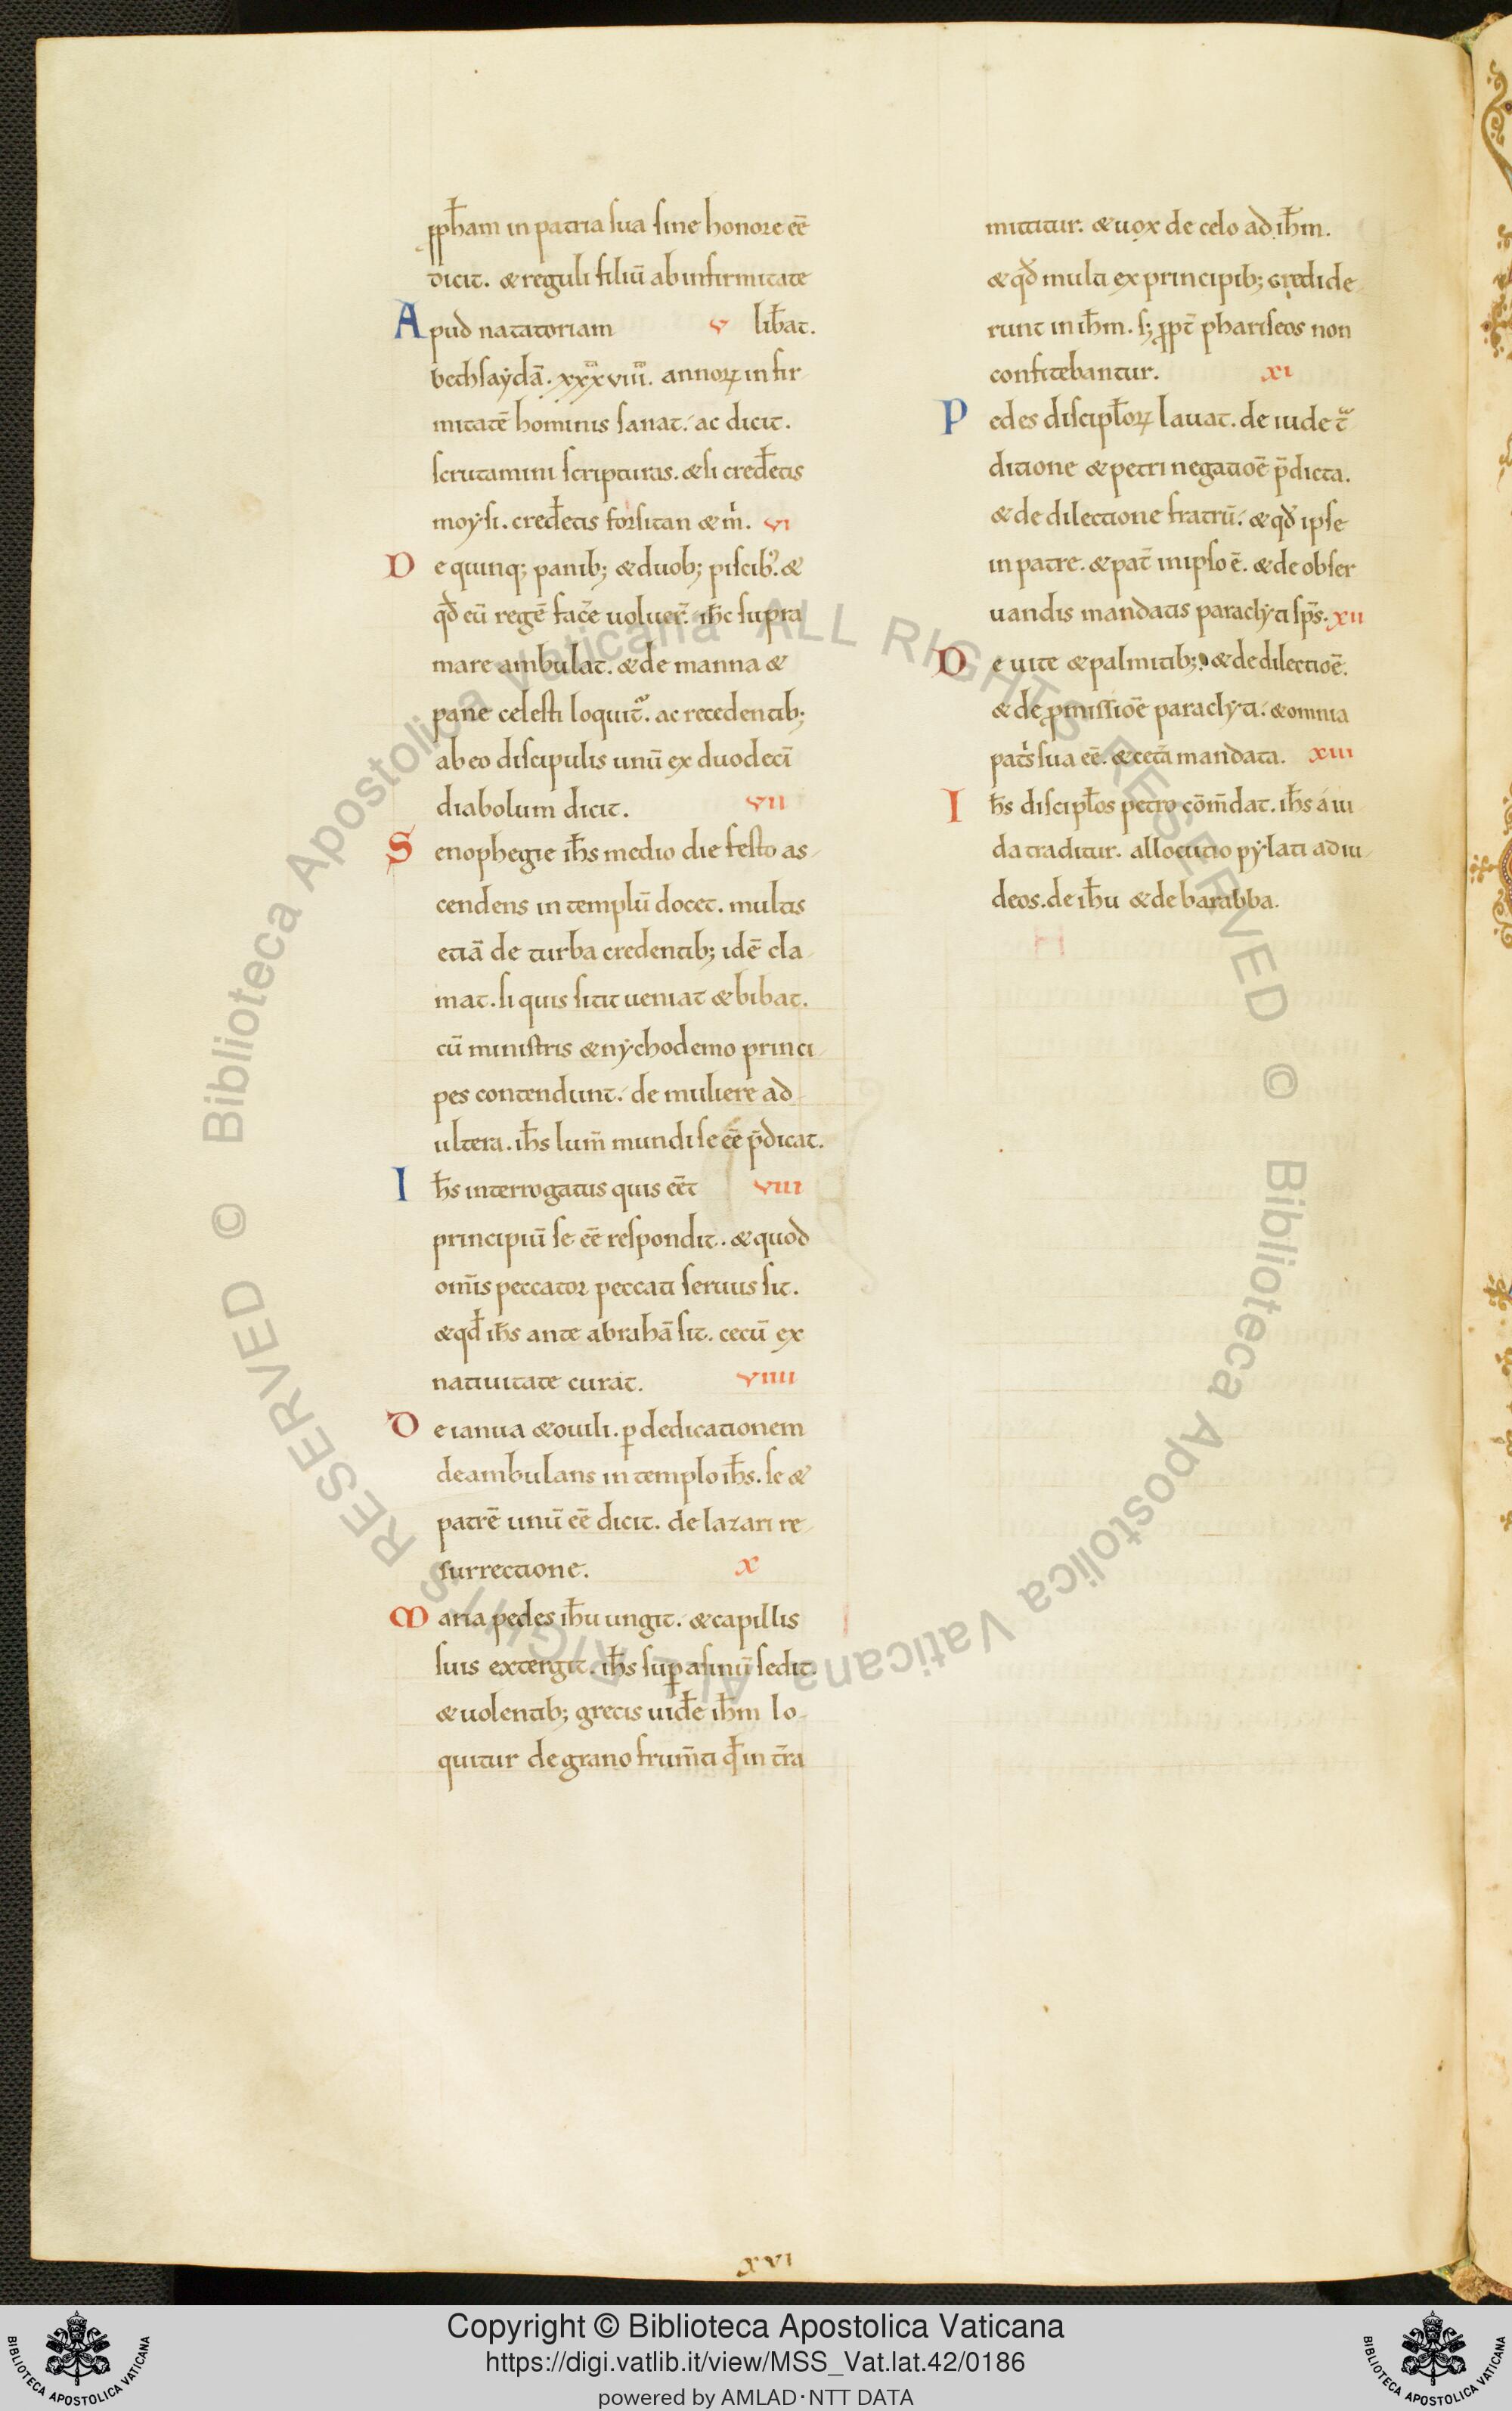 ꝓph̅am in patria sua sine honore ee̅
dicit. & reguli filiu̅ ab infirmitate
Apud natatoriam v lib̅at.
bethsaẏda̅. xxxviii. annoꝝ infir
mitate̅ hominis sanat. ac dicit.
scrutamini scripturas. & si cred̅etis
moẏsi. cred̅etis forsitan & m̅. vi
De quinq; panib; & duob; piscib;. &
qd̅ eu̅ rege̅ fac̅e uoluer̅. ih̅c supra
mare ambulat. & de manna &
pane celesti loquit̅. ac recedentib;
ab eo discipulis unu̅ ex duodeci̅
diabolum dicit. vii
Senophegie ih̅s medio die festo as
cendens in templu̅ docet. multis
etia̅ de turba credentib; ide̅ cla
mat. si quis sitit ueniat & bibat.
cu̅ ministris & nẏchodemo princi
pes contendunt. de muliere ad
ultera. ih̅s lum̅ mundi se ee̅ p̅dicat.
Ih̅s interrogatus quis ee̅t viii
principiu̅ se ee̅ respondit. & quod
om̅is peccator peccati seruus sit.
& qd̅ ih̅s ante abraha̅ sit. cecu̅ ex
natiuitate curat. viiii
De ianua & ouili. ꝑ dedicationem
deambulans in templo ih̅s. se &
patre̅ unu̅ ee̅ dicit. de lazari re
surrectione. x
Maria pedes ih̅u ungit. & capillis
suis extergit. ih̅s suꝑ asinu̅ sedit.
& uolentib; grecis uid̅e ih̅m lo
quitur de grano frum̅ti qd̅ in t̅ra
mittitur. & uox de celo ad ih̅m.
& qd̅ multi ex principib; credide
runt in ih̅m. s; ꝓpt̅ phariseos non
confitebantur. xi
Pedes discipl̅oꝝ lauat. de iude t̅
ditione & petri negatio̅e p̅dicta.
& de dilectione fratru̅. & qd̅ ipse
in patre. & pat̅ in ipso e̅. & de obser
uandis mandatis paraclẏti sp̅s. xii
De uite & palmitib;. & de dilectio̅e.
& de ꝓmissio̅e paraclẏti. & omnia
pat̅s sua ee̅. & cet̅a mandata. xiii
Ih̅s discipl̅os petro co̅m̅dat. ih̅s a iu
da traditur. allocutio pẏlati ad iu
deos. de ih̅u & de barabba.
xvi
© Biblioteca Apostolica Vaticana ALL RIGHTS RESERVED
© Biblioteca Apostolica Vaticana ALL RIGHTS RESERVED
Copyright © Biblioteca Apostolica Vaticana
https://digi.vatlib.it/view/MSS_Vat.lat.42/0186
powered by AMLAD·NTT DATA
BIBLIOTECA APOSTOLICA VATICANA
BIBLIOTECA APOSTOLICA VATICANA